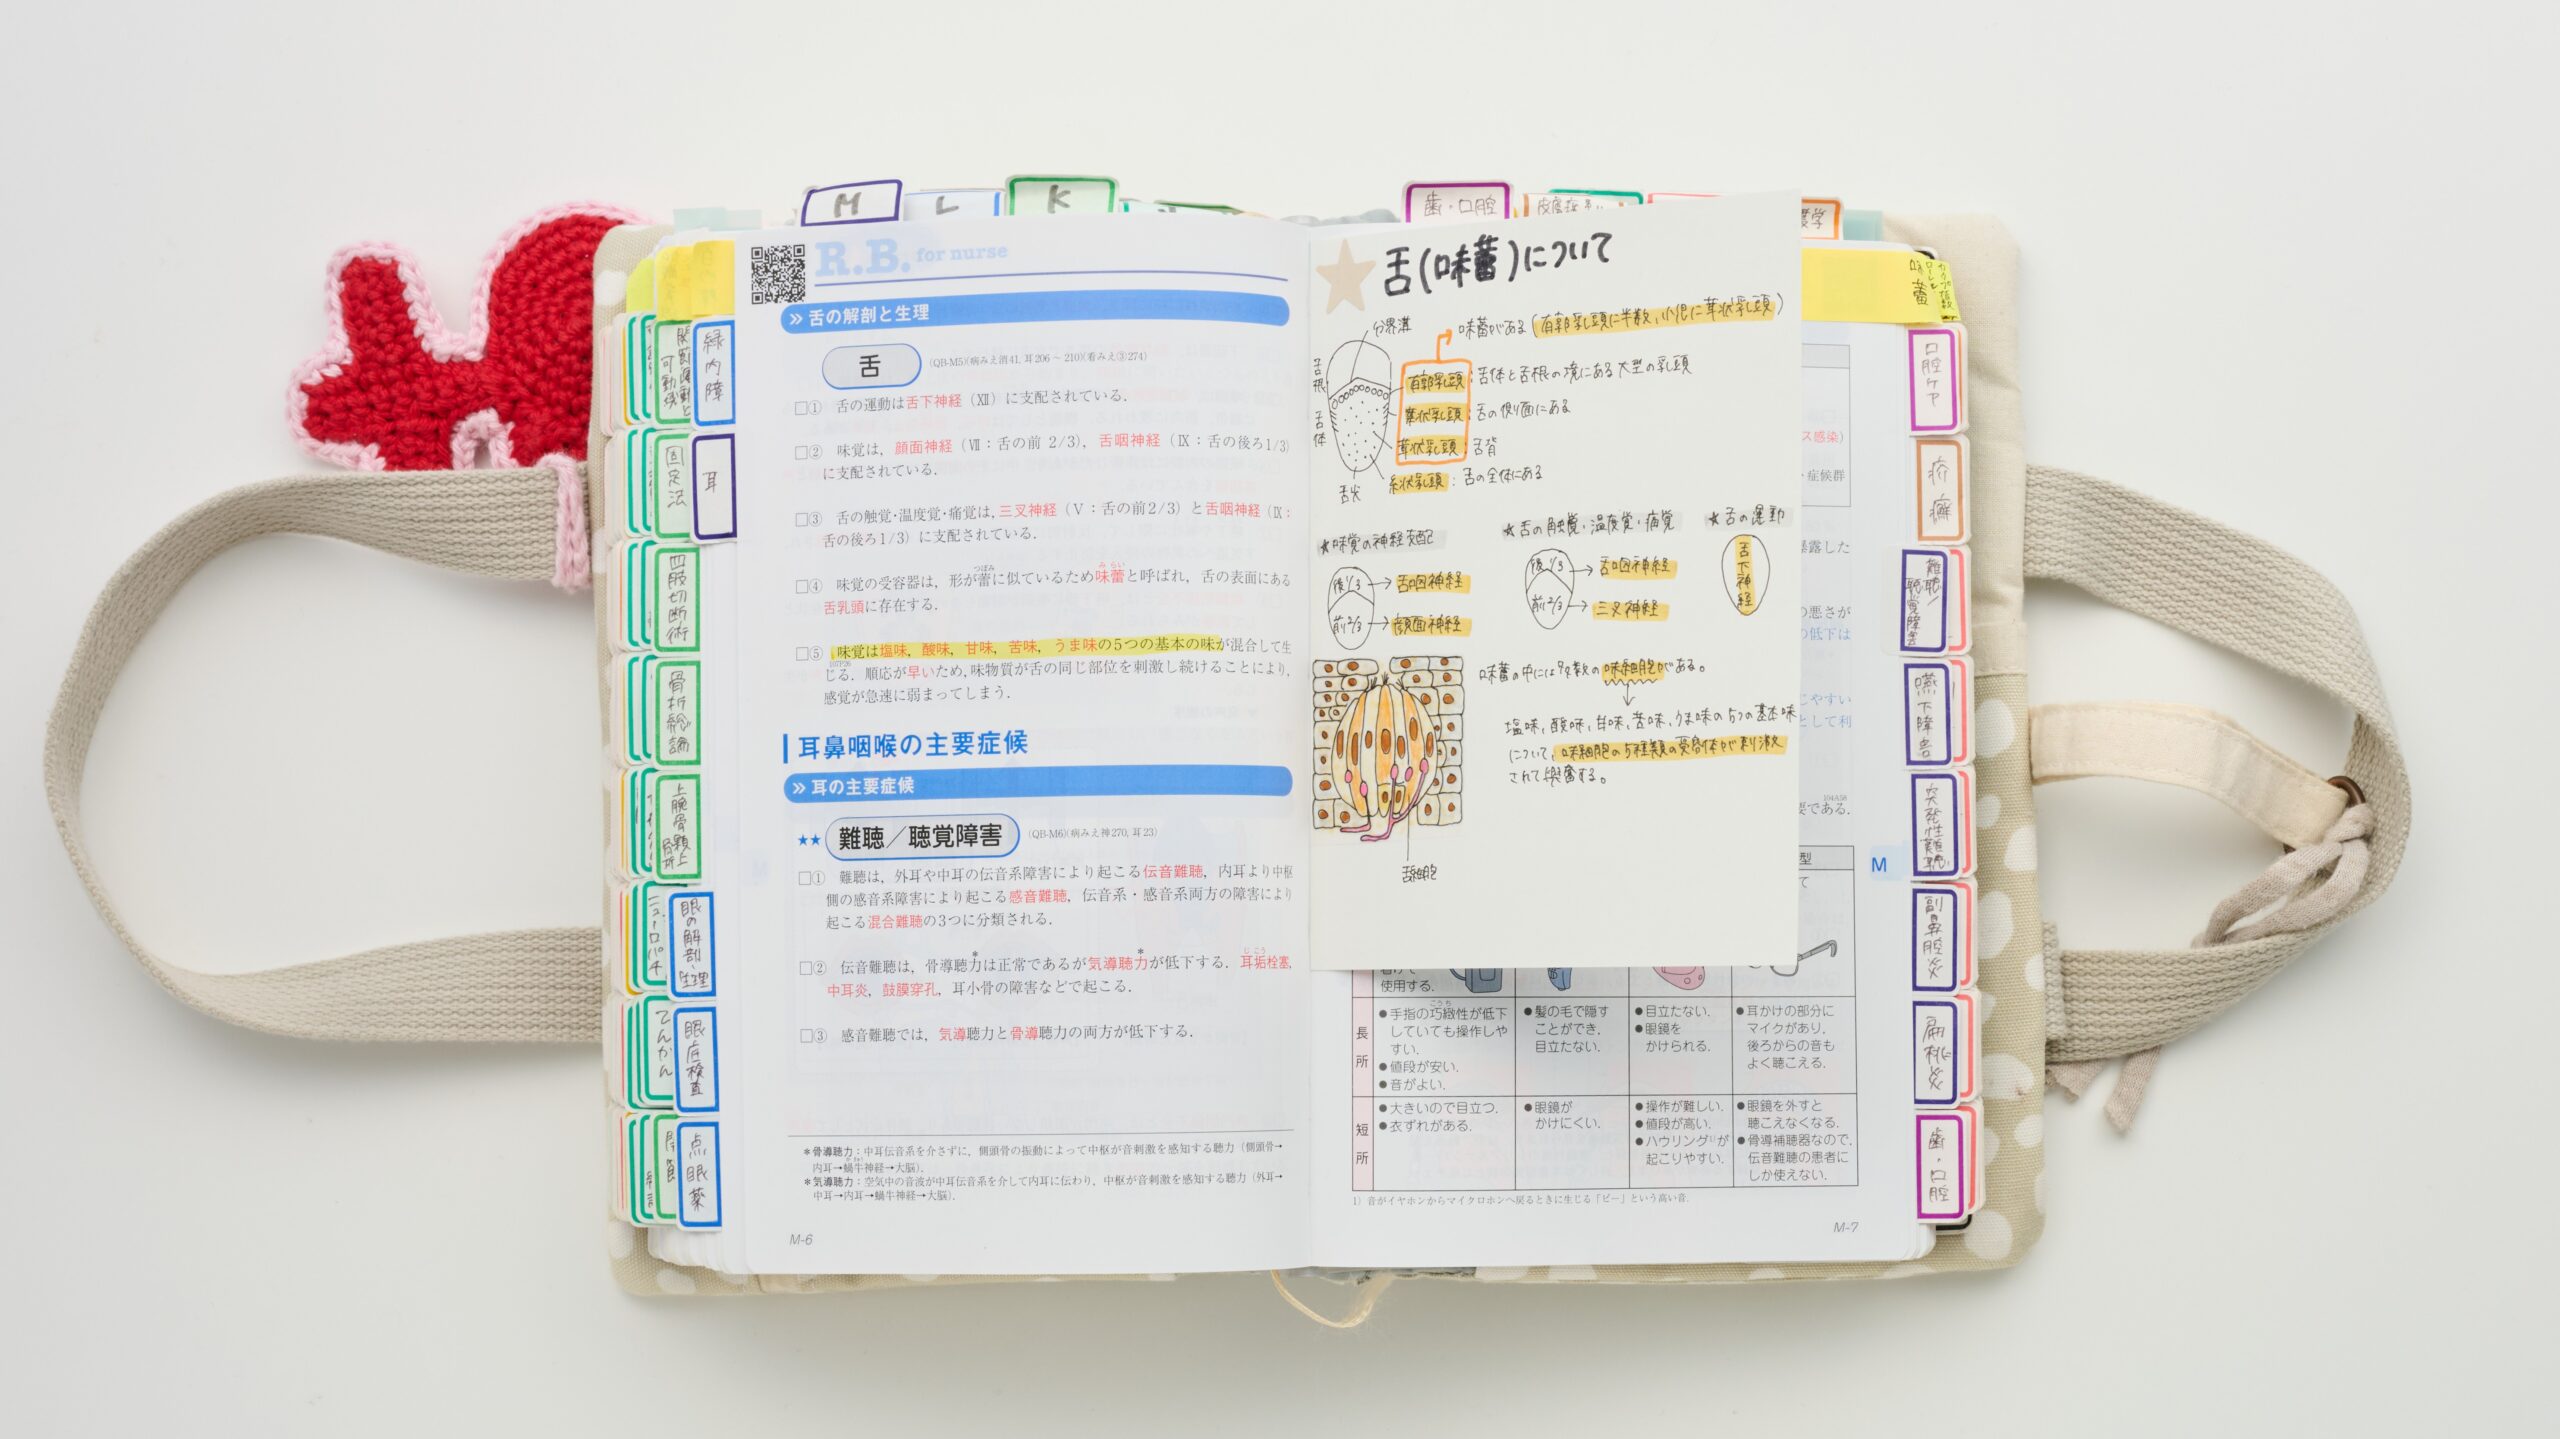 M
L
K
歯・口腔
R.B. for nurse
舌の解剖と生理
舌
(QB-M5)(病みえ消41, 耳206～210)(看みえ③274)
□① 舌の運動は舌下神経（Ⅻ）に支配されている．
□② 味覚は，顔面神経（Ⅶ：舌の前 2/3），舌咽神経（Ⅸ：舌の後ろ1/3）
に支配されている．
□③ 舌の触覚・温度覚・痛覚は，三叉神経（Ⅴ：舌の前2/3）と舌咽神経（Ⅸ：
舌の後ろ1/3）に支配されている．
つぼみ
みらい
□④ 味覚の受容器は，形が蕾に似ているため味蕾と呼ばれ，舌の表面にある
舌乳頭に存在する．
□⑤ 味覚は塩味，酸味，甘味，苦味，うま味の5つの基本の味が混合して生
107P26
じる．順応が早いため，味物質が舌の同じ部位を刺激し続けることにより，
感覚が急速に弱まってしまう．
耳鼻咽喉の主要症候
耳の主要症候
★★ 難聴／聴覚障害
(QB-M6)(病みえ神270, 耳23)
□① 難聴は，外耳や中耳の伝音系障害により起こる伝音難聴，内耳より中枢
側の感音系障害により起こる感音難聴，伝音系・感音系両方の障害により
起こる混合難聴の3つに分類される．
じこう
□② 伝音難聴は，骨導聴力*は正常であるが気導聴力*が低下する．耳垢栓塞，
中耳炎，鼓膜穿孔，耳小骨の障害などで起こる．
□③ 感音難聴では，気導聴力と骨導聴力の両方が低下する．
＊骨導聴力：中耳伝音系を介さずに，側頭骨の振動によって中枢が音刺激を感知する聴力（側頭骨→
内耳→蝸牛神経→大脳）．
＊気導聴力：空気中の音波が中耳伝音系を介して内耳に伝わり，中枢が音刺激を感知する聴力（外耳→
中耳→内耳→蝸牛神経→大脳）．
M-6
緑内障
耳
関節運動と可動域
固定法
四肢切断術
骨折総論
上腕骨顆上骨折
眼の解剖・生理
ニューロパチ
眼底検査
てんかん
点眼薬
舌(味蕾)について
分界溝
味蕾がある(有郭乳頭に半数、小児に茸状乳頭)
舌根
舌体
舌尖
有郭乳頭：舌体と舌根の境にある大型の乳頭
葉状乳頭：舌の側面にある
茸状乳頭：舌背
糸状乳頭：舌の全体にある
★味覚の神経支配
後1/3→舌咽神経
前2/3→顔面神経
★舌の触覚・温度覚・痛覚
後1/3→舌咽神経
前2/3→三叉神経
★舌の運動
舌下神経
味蕾の中には多数の味細胞がある。
塩味，酸味，甘味，苦味，うま味の5つの基本味
について，味細胞の5種類の受容体が刺激
されて興奮する。
味蕾
口腔ケア
疥癬
難聴/聴覚障害
嚥下障害
突発性難聴
副鼻腔炎
扁桃炎
歯・口腔
ス感染）
・症候群
暴露した
の悪さが
の低下は
じやすい
として利
104A58
要である．
M
型
使用する．
長所
こうち
●手指の巧緻性が低下
していても操作しや
すい．
●値段が安い．
●音がよい．
●髪の毛で隠す
ことができ，
目立たない．
●目立たない．
●眼鏡を
かけられる．
●耳かけの部分に
マイクがあり，
後ろからの音も
よく聴こえる．
短所
●大きいので目立つ．
●衣ずれがある．
●眼鏡が
かけにくい．
●操作が難しい．
●値段が高い．
●ハウリング1)が
起こりやすい．
●眼鏡を外すと
聴こえなくなる．
●骨導補聴器なので，
伝音難聴の患者に
しか使えない．
1）音がイヤホンからマイクロホンへ戻るときに生じる「ピー」という高い音．
M-7